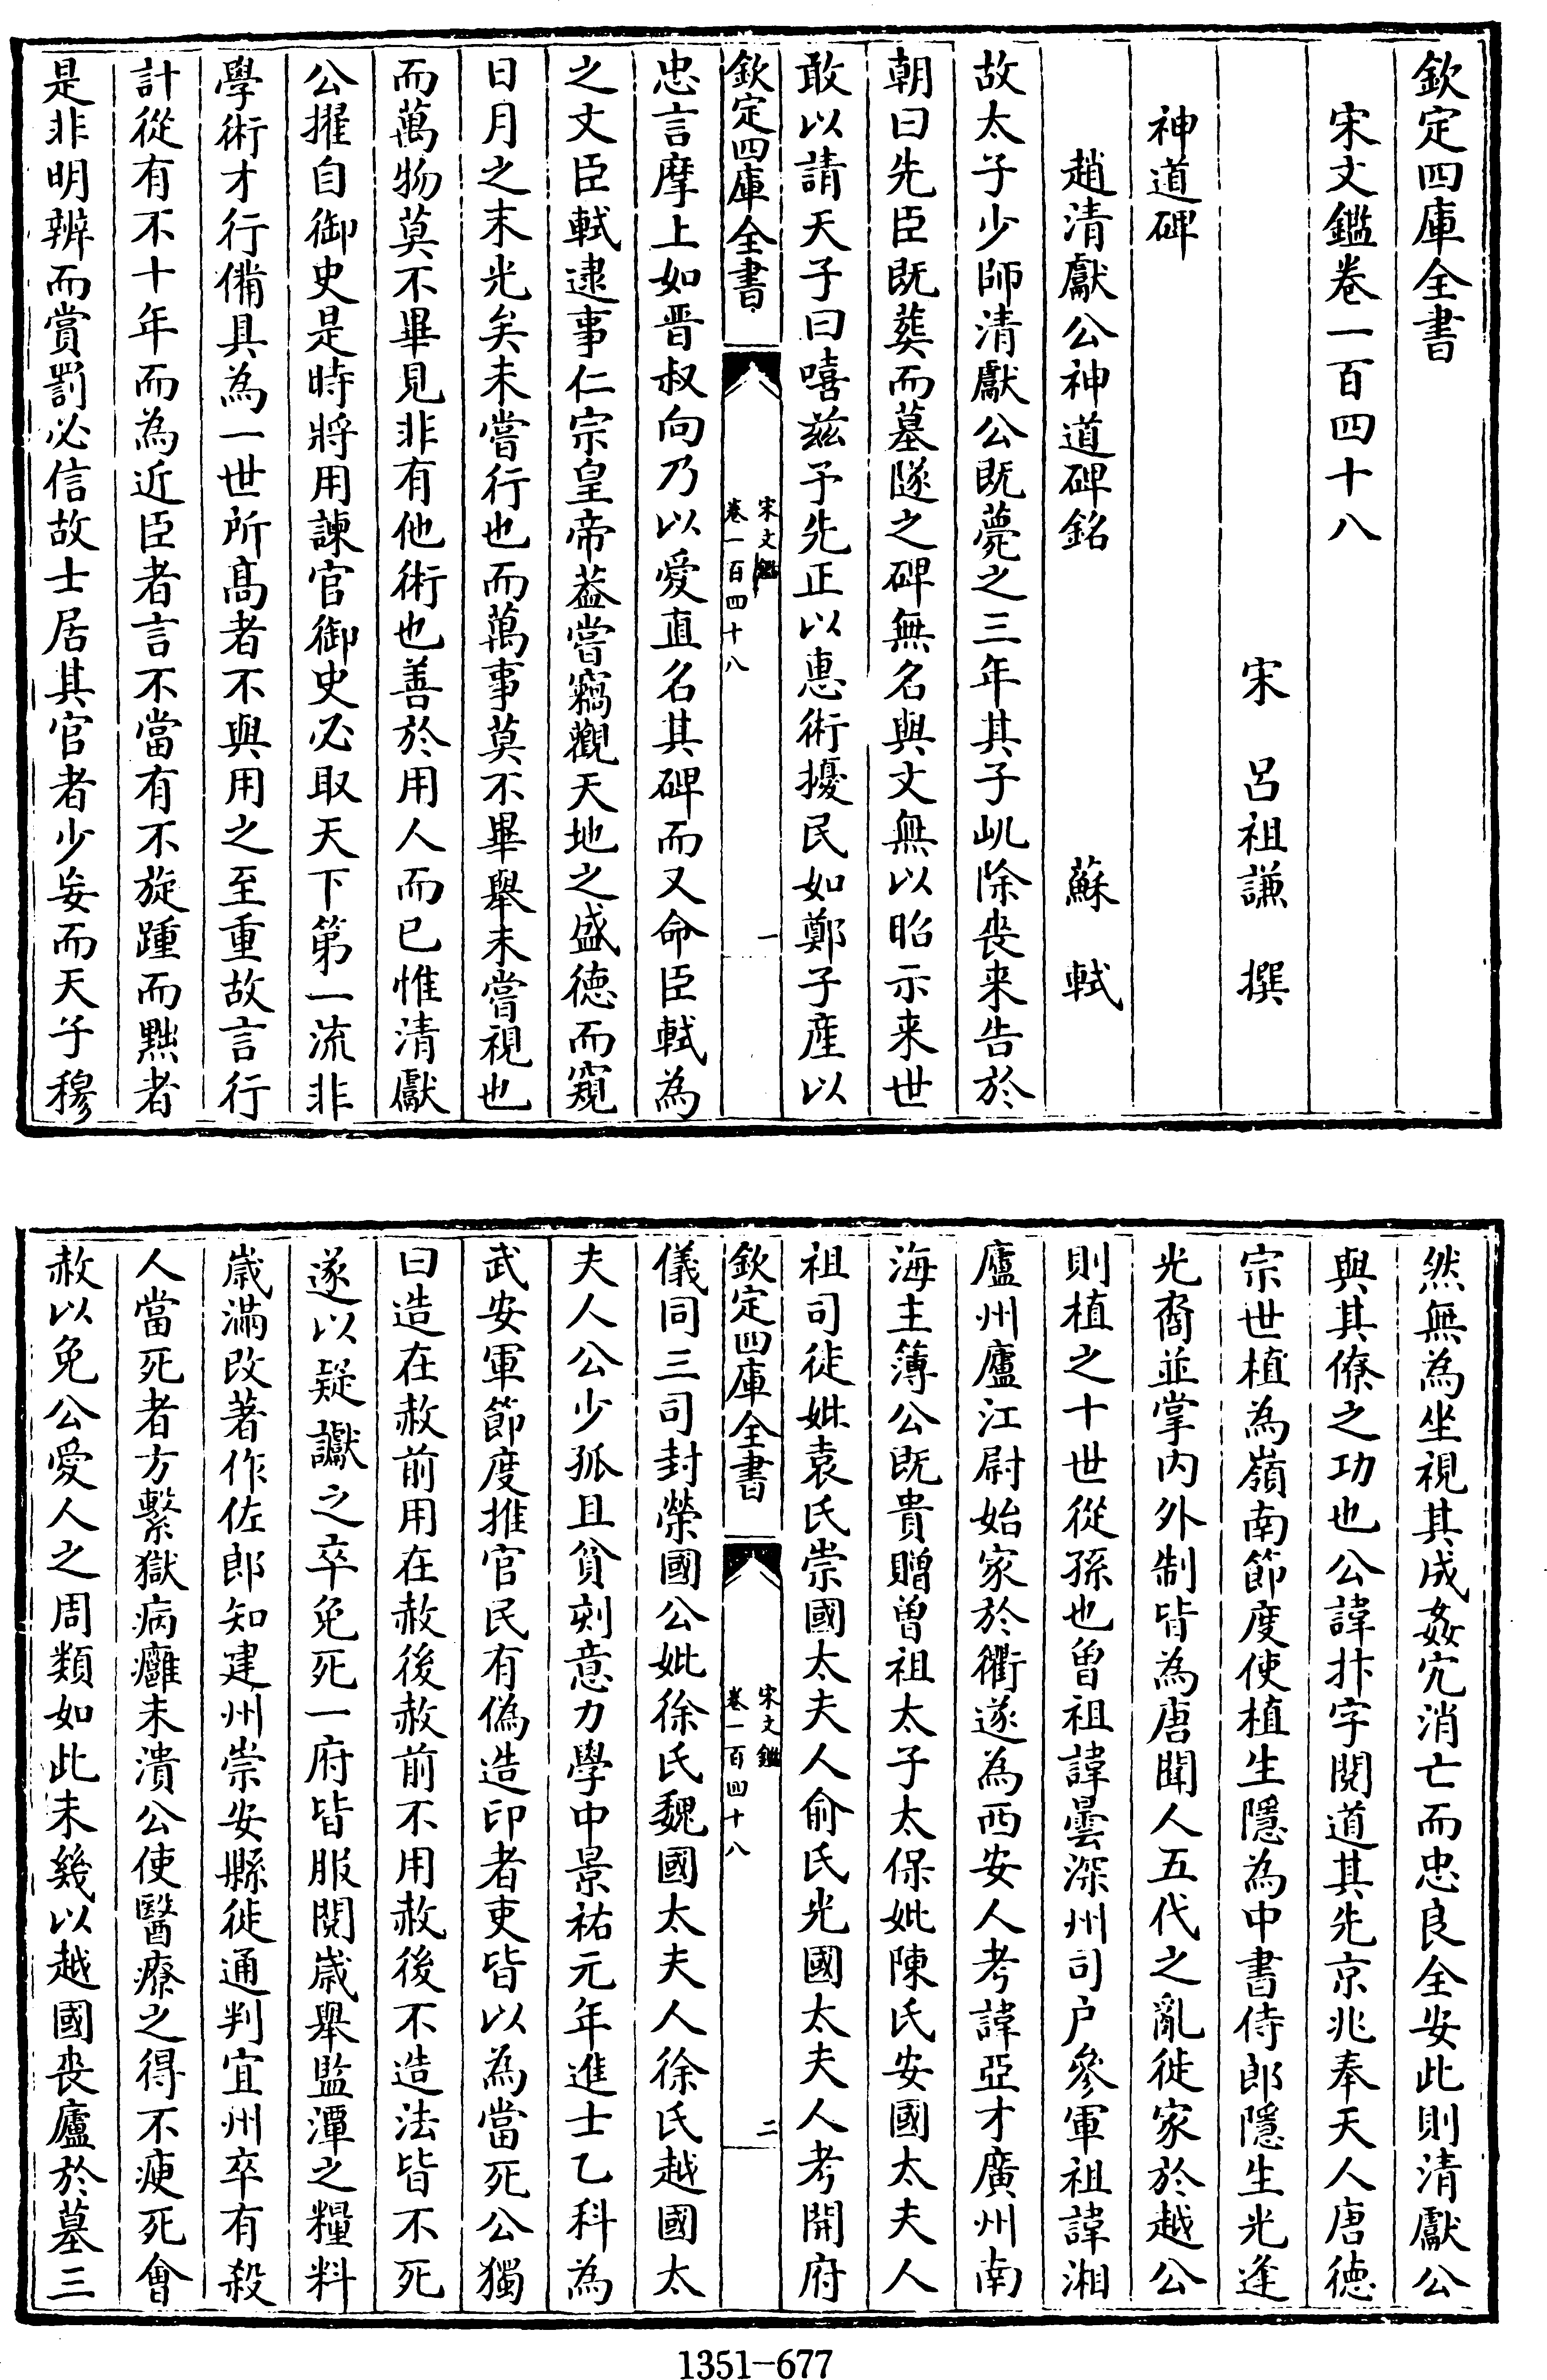 欽定四庫全書
宋文鑑卷一百四十八
宋 呂祖謙 撰
神道碑
趙清獻公神道碑銘 蘇軾
故太子少師清獻公既薨之三年其子屼除喪来告於
朝曰先臣既葬而墓隧之碑無名與文無以昭示来世
敢以請天子曰嘻兹予先正以惠術擾民如鄭子産以
欽定四庫全書 宋文鑑 卷一百四十八 一
忠言摩上如晋叔向乃以愛直名其碑而又命臣軾為
之文臣軾逮事仁宗皇帝葢嘗竊觀天地之盛徳而窺
日月之末光矣未嘗行也而萬事莫不畢舉未嘗視也
而萬物莫不畢見非有他術也善於用人而已惟清獻
公擢自御史是時將用諫官御史必取天下第一流非
學術才行備具為一世所髙者不與用之至重故言行
計從有不十年而為近臣者言不當有不旋踵而黜者
是非明辨而賞罰必信故士居其官者少妄而天子穆
然無為坐視其成姦宄消亡而忠良全安此則清獻公
與其僚之功也公諱抃字閱道其先京兆奉天人唐徳
宗世植為嶺南節度使植生隱為中書侍郎隱生光逢
光裔並掌内外制皆為唐聞人五代之亂徙家於越公
則植之十世從孫也曾祖諱曇深州司户參軍祖諱湘
廬州廬江尉始家於衢遂為西安人考諱亞才廣州南
海主簿公既貴贈曾祖太子太保妣陳氏安國太夫人
祖司徒妣袁氏崇國太夫人俞氏光國太夫人考開府
欽定四庫全書 宋文鑑 卷一百四十八 二
儀同三司封榮國公妣徐氏魏國太夫人徐氏越國太
夫人公少孤且貧刻意力學中景祐元年進士乙科為
武安軍節度推官民有偽造印者吏皆以為當死公獨
曰造在赦前用在赦後赦前不用赦後不造法皆不死
遂以疑讞之卒免死一府皆服閱歳舉監潭之糧料
歳滿改著作佐郎知建州崇安縣徙通判宜州卒有殺
人當死者方繫獄病癰未潰公使醫療之得不瘐死會
赦以免公愛人之周類如此未幾以越國喪廬於墓三
1351-677